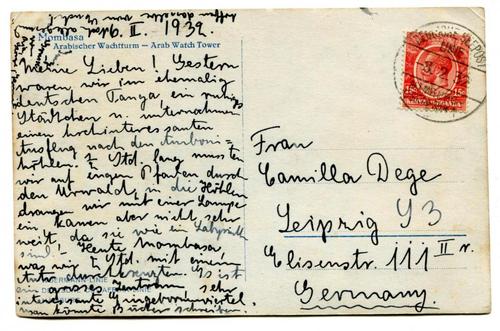 6. II. 1932.
Mombasa
Arabischer Wachtturm — Arab Watch Tower
Meine Lieben! Gestern
waren wir im ehemalig
deutschen Tanga, ein
Städtchen u. unternahmen
einen hochinteressanten
Ausflug nach den Amboni=
höhlen. ½ Std. lang mussten
wir auf engen Pfaden durch
den Urwald, in die Höhlen
drangen wir mit einer Lampe
ein kamen aber nicht sehr
weit, da sie wie ein Labyrinth
sind! - Heute Mombasa
was wir ½ Std. mit einem
Auto durchkreuzten. Es ist
ein grosses Zentrum, sehr
interessante Eingeborenenviertel
man könnte Bücher schreiben.
WOERMANN LINIE
15c
KENYA UGANDA
Frau
Camilla Dege
Leipzig S3
Elisenstr. 111 II r.
Germany.